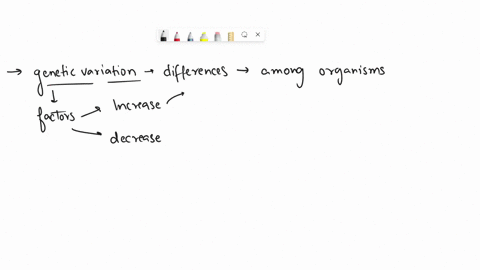 → genetic variation → differences → among organisms
↓
factors → Increase →
→ decrease